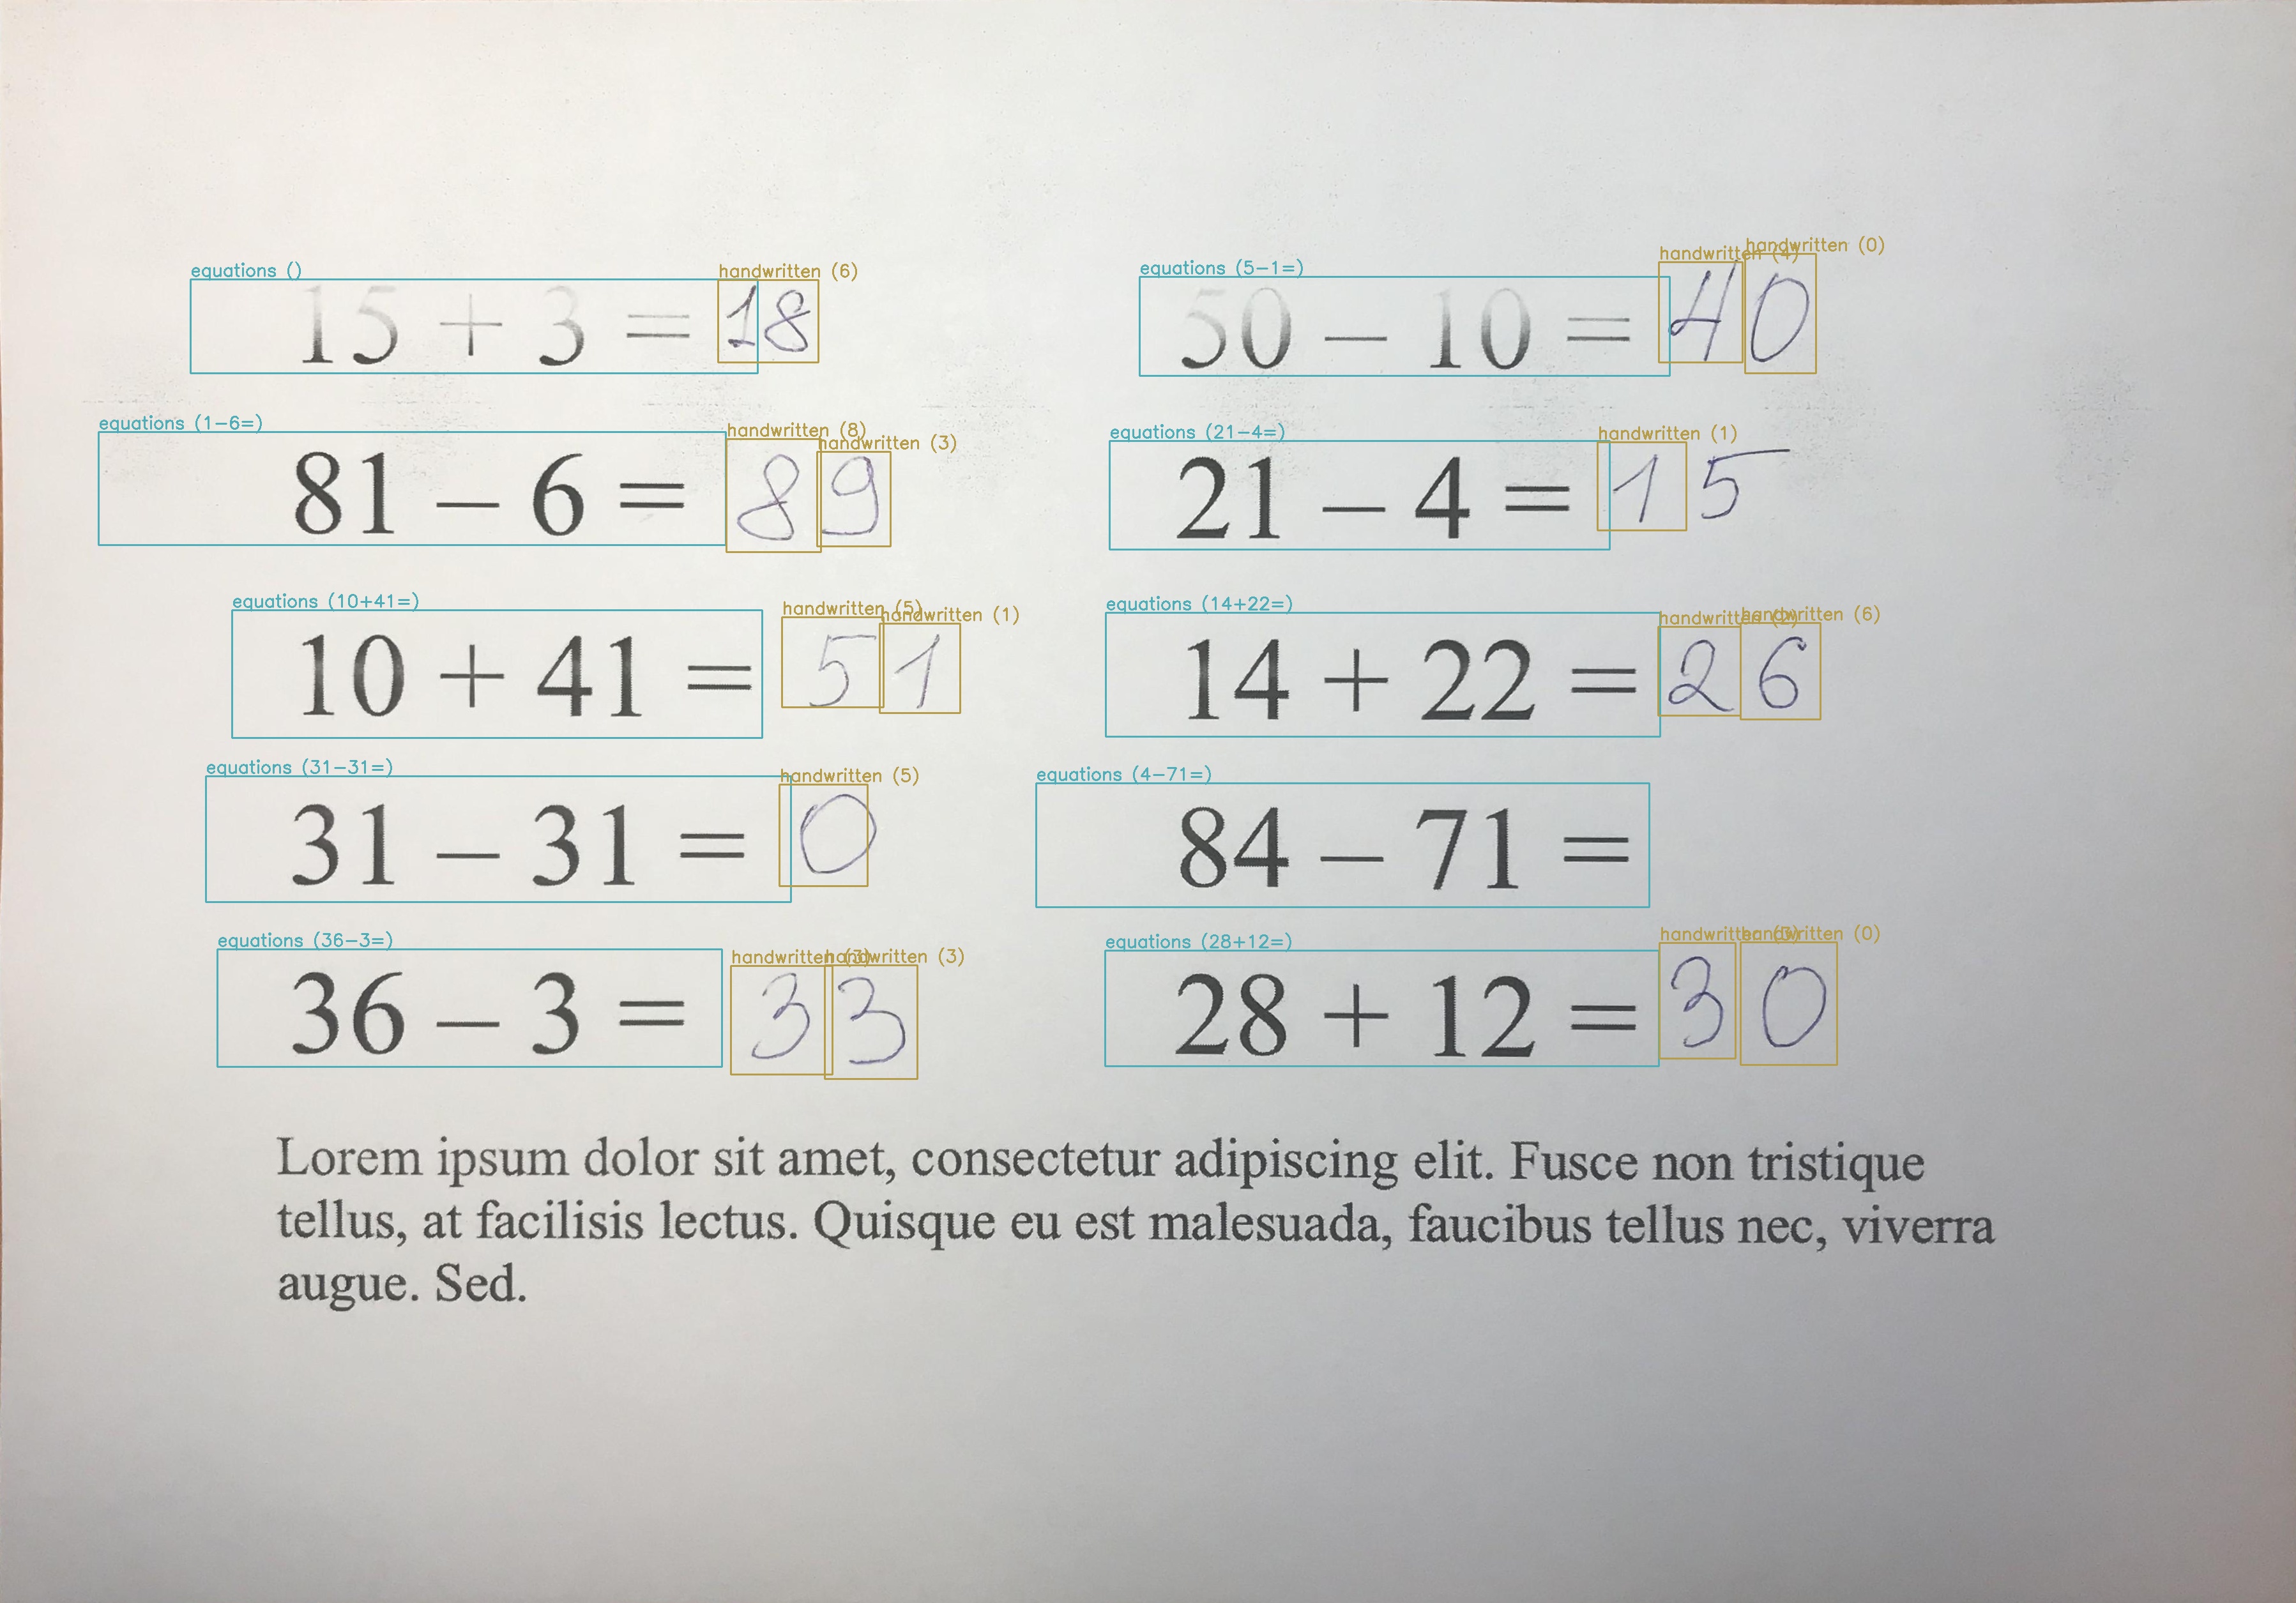 equations () handwritten (6) equations (5-1=) handwritten (4) handwritten (0)
15 + 3 = 18 50 – 10 = 40
equations (1-6=) handwritten (8) handwritten (3) equations (21-4=) handwritten (1)
81 – 6 = 89 21 – 4 = 15
equations (10+41=) handwritten (5) handwritten (1) equations (14+22=) handwritten (2) handwritten (6)
10 + 41 = 51 14 + 22 = 26
equations (31-31=) handwritten (5) equations (4-71=)
31 – 31 = 0 84 – 71 =
equations (36-3=) handwritten (3) handwritten (3) equations (28+12=) handwritten handwritten (0)
36 – 3 = 33 28 + 12 = 30
Lorem ipsum dolor sit amet, consectetur adipiscing elit. Fusce non tristique
tellus, at facilisis lectus. Quisque eu est malesuada, faucibus tellus nec, viverra
augue. Sed.